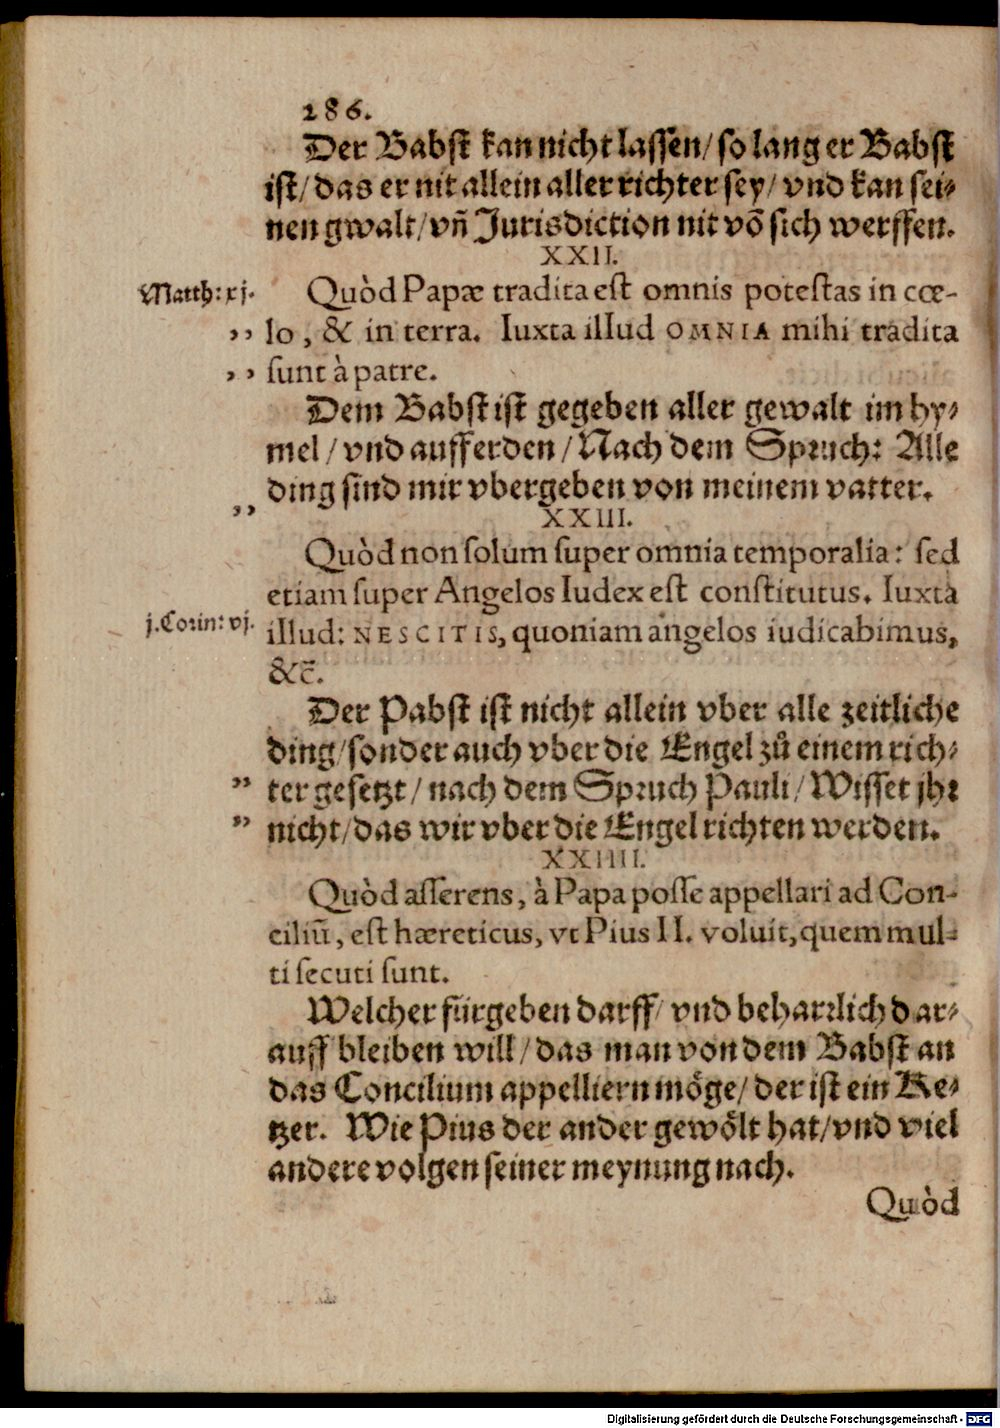 286.
Der Babst kan nicht lassen/ so lang er Babst
ist/ das er nit allein aller richter sey/ vnd kan sei⸗
nen gwalt/ vñ Jurisdiction nit võ sich werffen.
XXII.
Matth: xj. Quòd Papæ tradita est omnis potestas in cœ-
,, lo, & in terra. Iuxta illud OMNIA mihi tradita
,, sunt à patre.
Dem Babst ist gegeben aller gewalt im hy⸗
mel/ vnd auff erden/ Nach dem Spruch: Alle
,, ding sind mir vbergeben von meinem vatter.
XXIII.
Quòd non solum super omnia temporalia: sed
etiam super Angelos Iudex est constitutus. Iuxta
j. Corin: vj. illud: NESCITIS, quoniam angelos iudicabimus,
&c̄.
Der Pabst ist nicht allein vber alle zeitliche
ding/ sonder auch vber die Engel zů einem rich⸗
,, ter gesetzt/ nach dem Spruch Pauli/ Wisset jhr
,, nicht/ das wir vber die Engel richten werden.
XXIIII.
Quòd asserens, à Papa posse appellari ad Con-
ciliũ, est hæreticus, vt Pius II. voluit, quem mul-
ti secuti sunt.
Welcher fürgeben darff/ vnd beharrlich dar⸗
auff bleiben will/ das man von dem Babst an
das Concilium appelliern möge/ der ist ein Ke⸗
tzer. Wie Pius der ander gewölt hat/ vnd viel
andere volgen seiner meynung nach.
Quòd
Digitalisierung gefördert durch die Deutsche Forschungsgemeinschaft - DFG